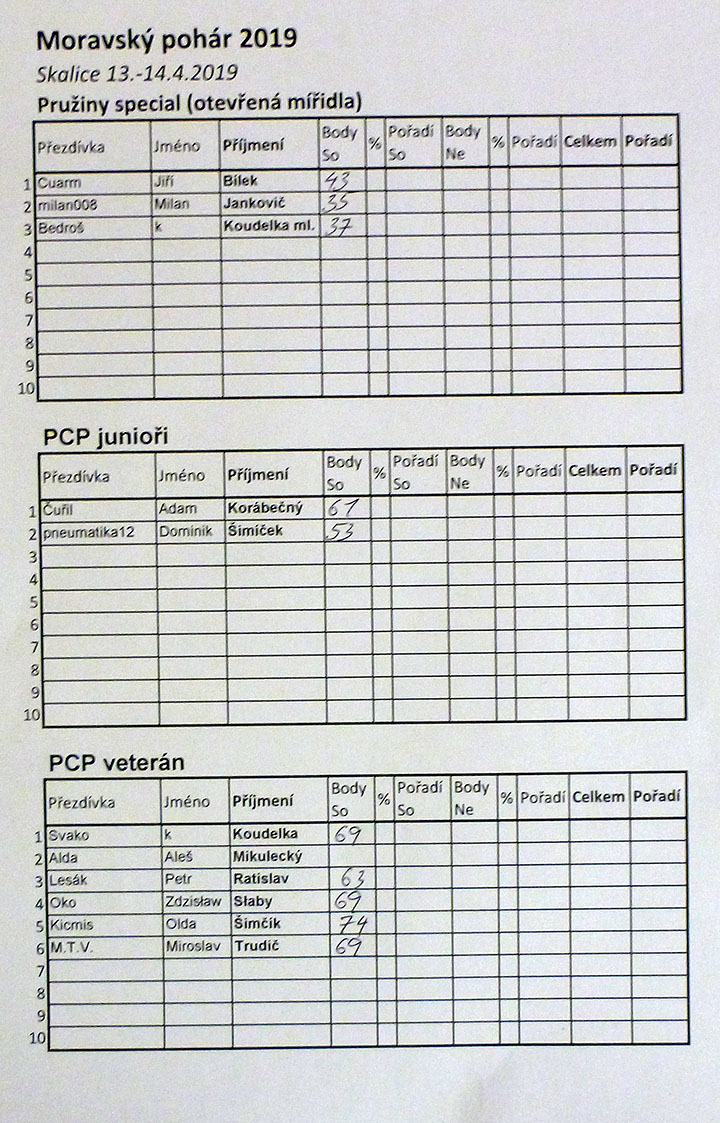 Moravský pohár 2019
Skalice 13.-14.4.2019
Pružiny special (otevřená mířidla)
Přezdívka Jméno Příjmení Body So % Pořadí So Body Ne % Pořadí Celkem Pořadí
1 Cuarm Jiří Bílek 43
2 milan008 Milan Jankovič 35
3 Bedroš k Koudelka ml. 37
4
5
6
7
8
9
10
PCP junioři
Přezdívka Jméno Příjmení Body So % Pořadí So Body Ne % Pořadí Celkem Pořadí
1 Čuřil Adam Korábečný 61
2 pneumatika12 Dominik Šimíček 53
3
4
5
6
7
8
9
10
PCP veterán
Přezdívka Jméno Příjmení Body So % Pořadí So Body Ne % Pořadí Celkem Pořadí
1 Svako k Koudelka 69
2 Alda Aleš Mikulecký
3 Lesák Petr Ratislav 63
4 Oko Zdzisław Słaby 69
5 Kicmis Olda Šimčík 74
6 M.T.V. Miroslav Trudič 69
7
8
9
10